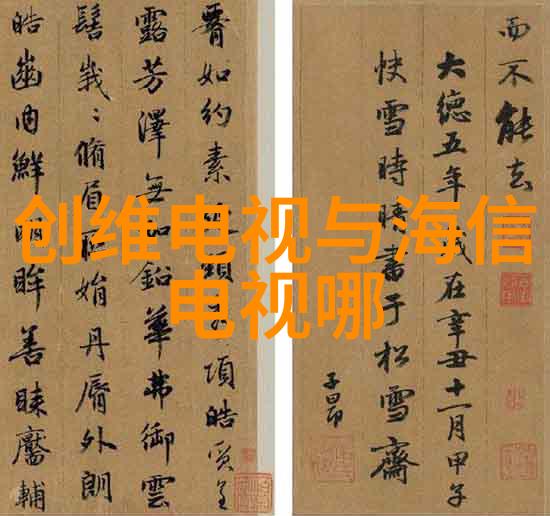 创维电视与海信
电视哪
肩如約素頸項皓質呈
露芳澤無加鉛華弗御雲
髻峩〻脩眉聯娟丹脣外朗
皓齒内鮮明眸善睞靨輔
而不能去
大德五年歲在辛丑十一月甲子
快雪時晴書于松雪齋
子昂